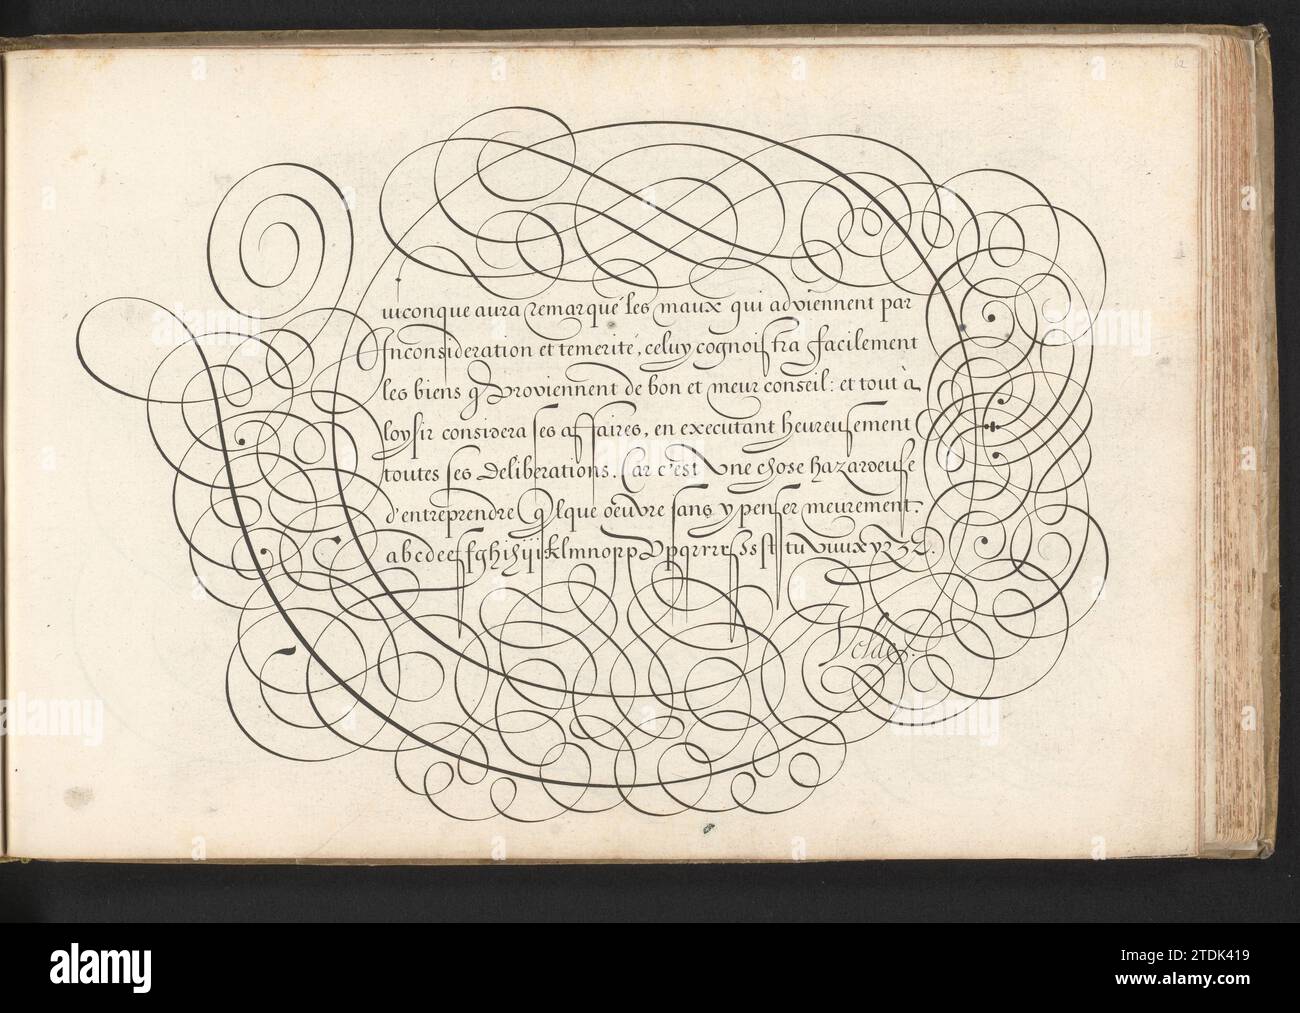 62
uiconque aura remarqué les maux qui adviennent par
Inconsideration et temerité, celuy cognoistra facilement
les biens q proviennent de bon et meur conseil: et tout à
loysir considera ses affaires, en executant heureusement
toutes ses deliberations. Car c'est une chose hazardeuse
d'entreprendre qlque oeuvre sans y penser meurement.
abcdeeffghihijiklmnoppvpqrrresssststuvuuxyz3z.
Velde.
alamy
Image ID: 2TDK419
www.alamy.com